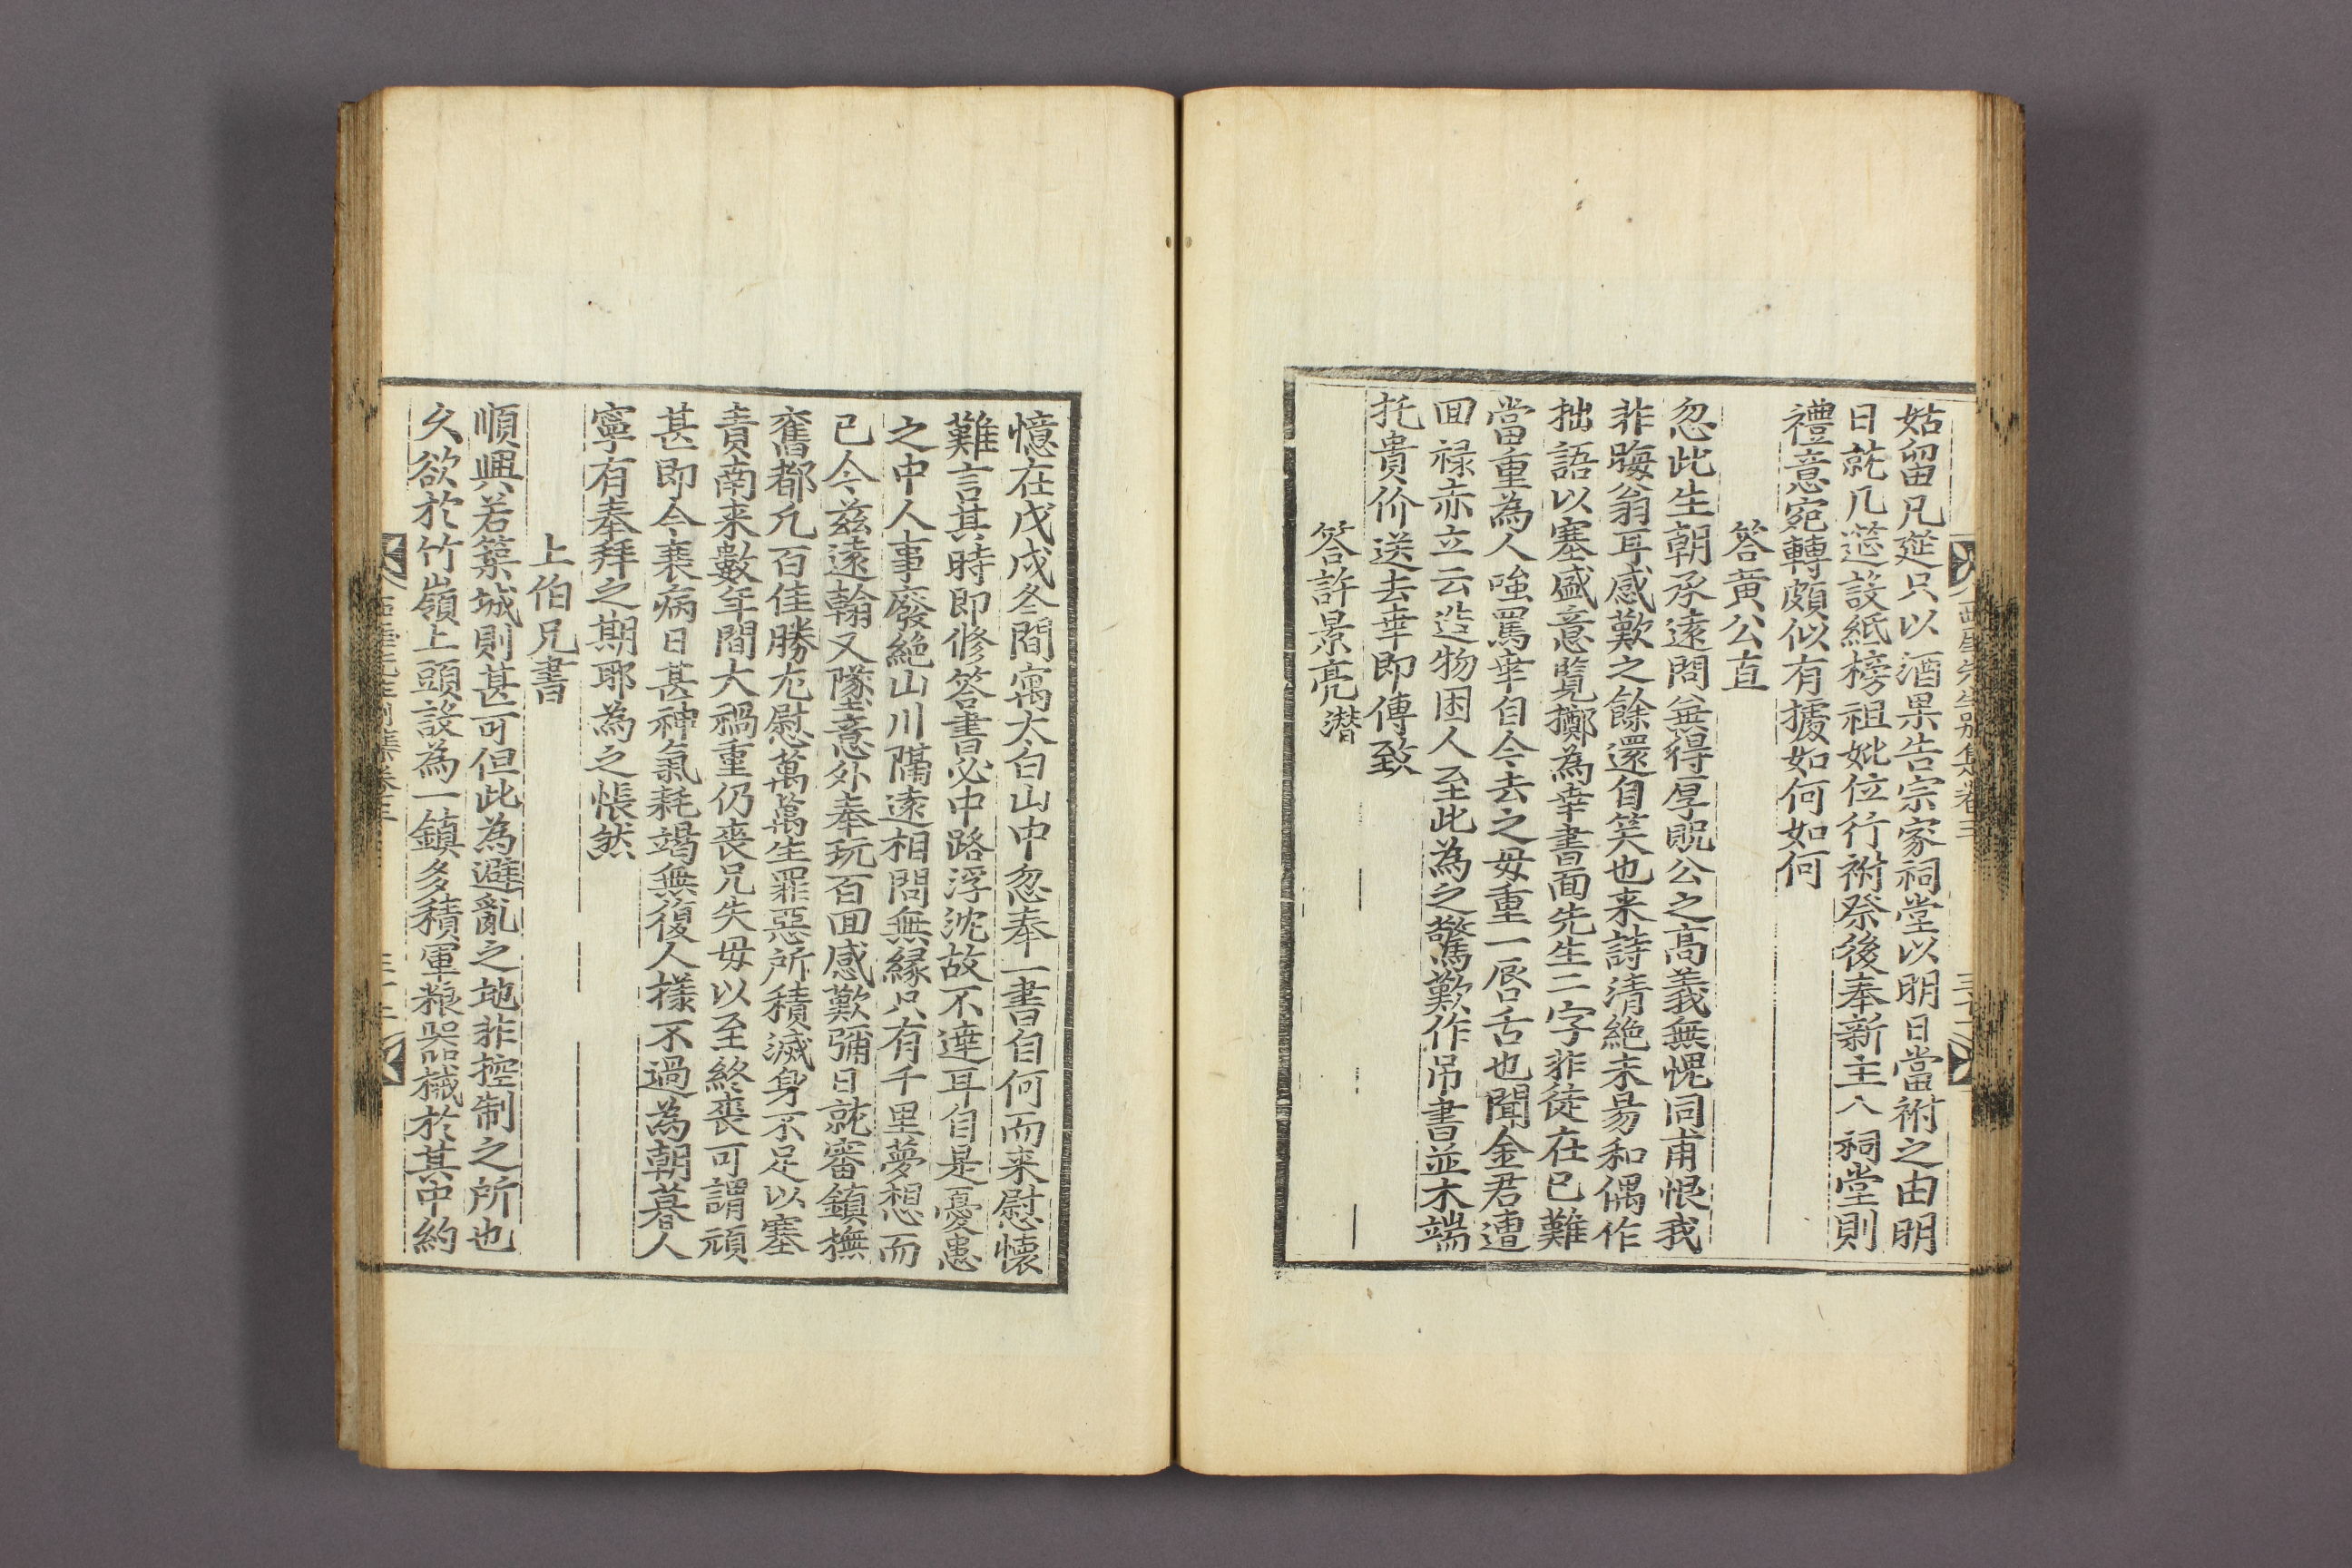 姑留凡筵只以酒果告宗家祠堂以明日當祔之由明
日就几筵設紙榜祖妣位行祔祭後奉新主入祠堂則
禮意宛轉頗似有據如何如何
答黃公直
忽此生朝承遠問無得厚貺公之高義無愧同甫恨我
非晦翁耳感歎之餘還自笑也来詩清絶未易和偶作
拙語以塞盛意覽擲為幸書面先生二字非徒在已難
當重為人嗤罵幸自今去之毋重一唇舌也聞金君遭
回禄亦立云造物困人至此為之驚歎作吊書並木端
托貴价送去幸即傳致
答許景亮潜
憶在戊戌冬間寓太白山中忽奉一書自何而来慰懷
難言其時即修答書必中路浮沈故不達耳自是憂患
之中人事廢絶山川隔遠相問無緣只有千里夢想而
已今兹遠翰又墜意外奉玩百回感歎彌日就審鎮撫
舊都凡百佳勝尤慰萬萬生罪惡所積滅身不足以塞
責南来數年間大禍重仍喪兄失毋以至終喪可謂頑
甚即今衰病日甚神氣耗竭無復人樣不過為朝暮人
寧有奉拜之期耶為之悵然
上伯兄書
順興若築城則甚可但此為避亂之地非控制之所也
久欲於竹嶺上頭設為一鎮多積軍粮器械於其中約
先生別集卷三